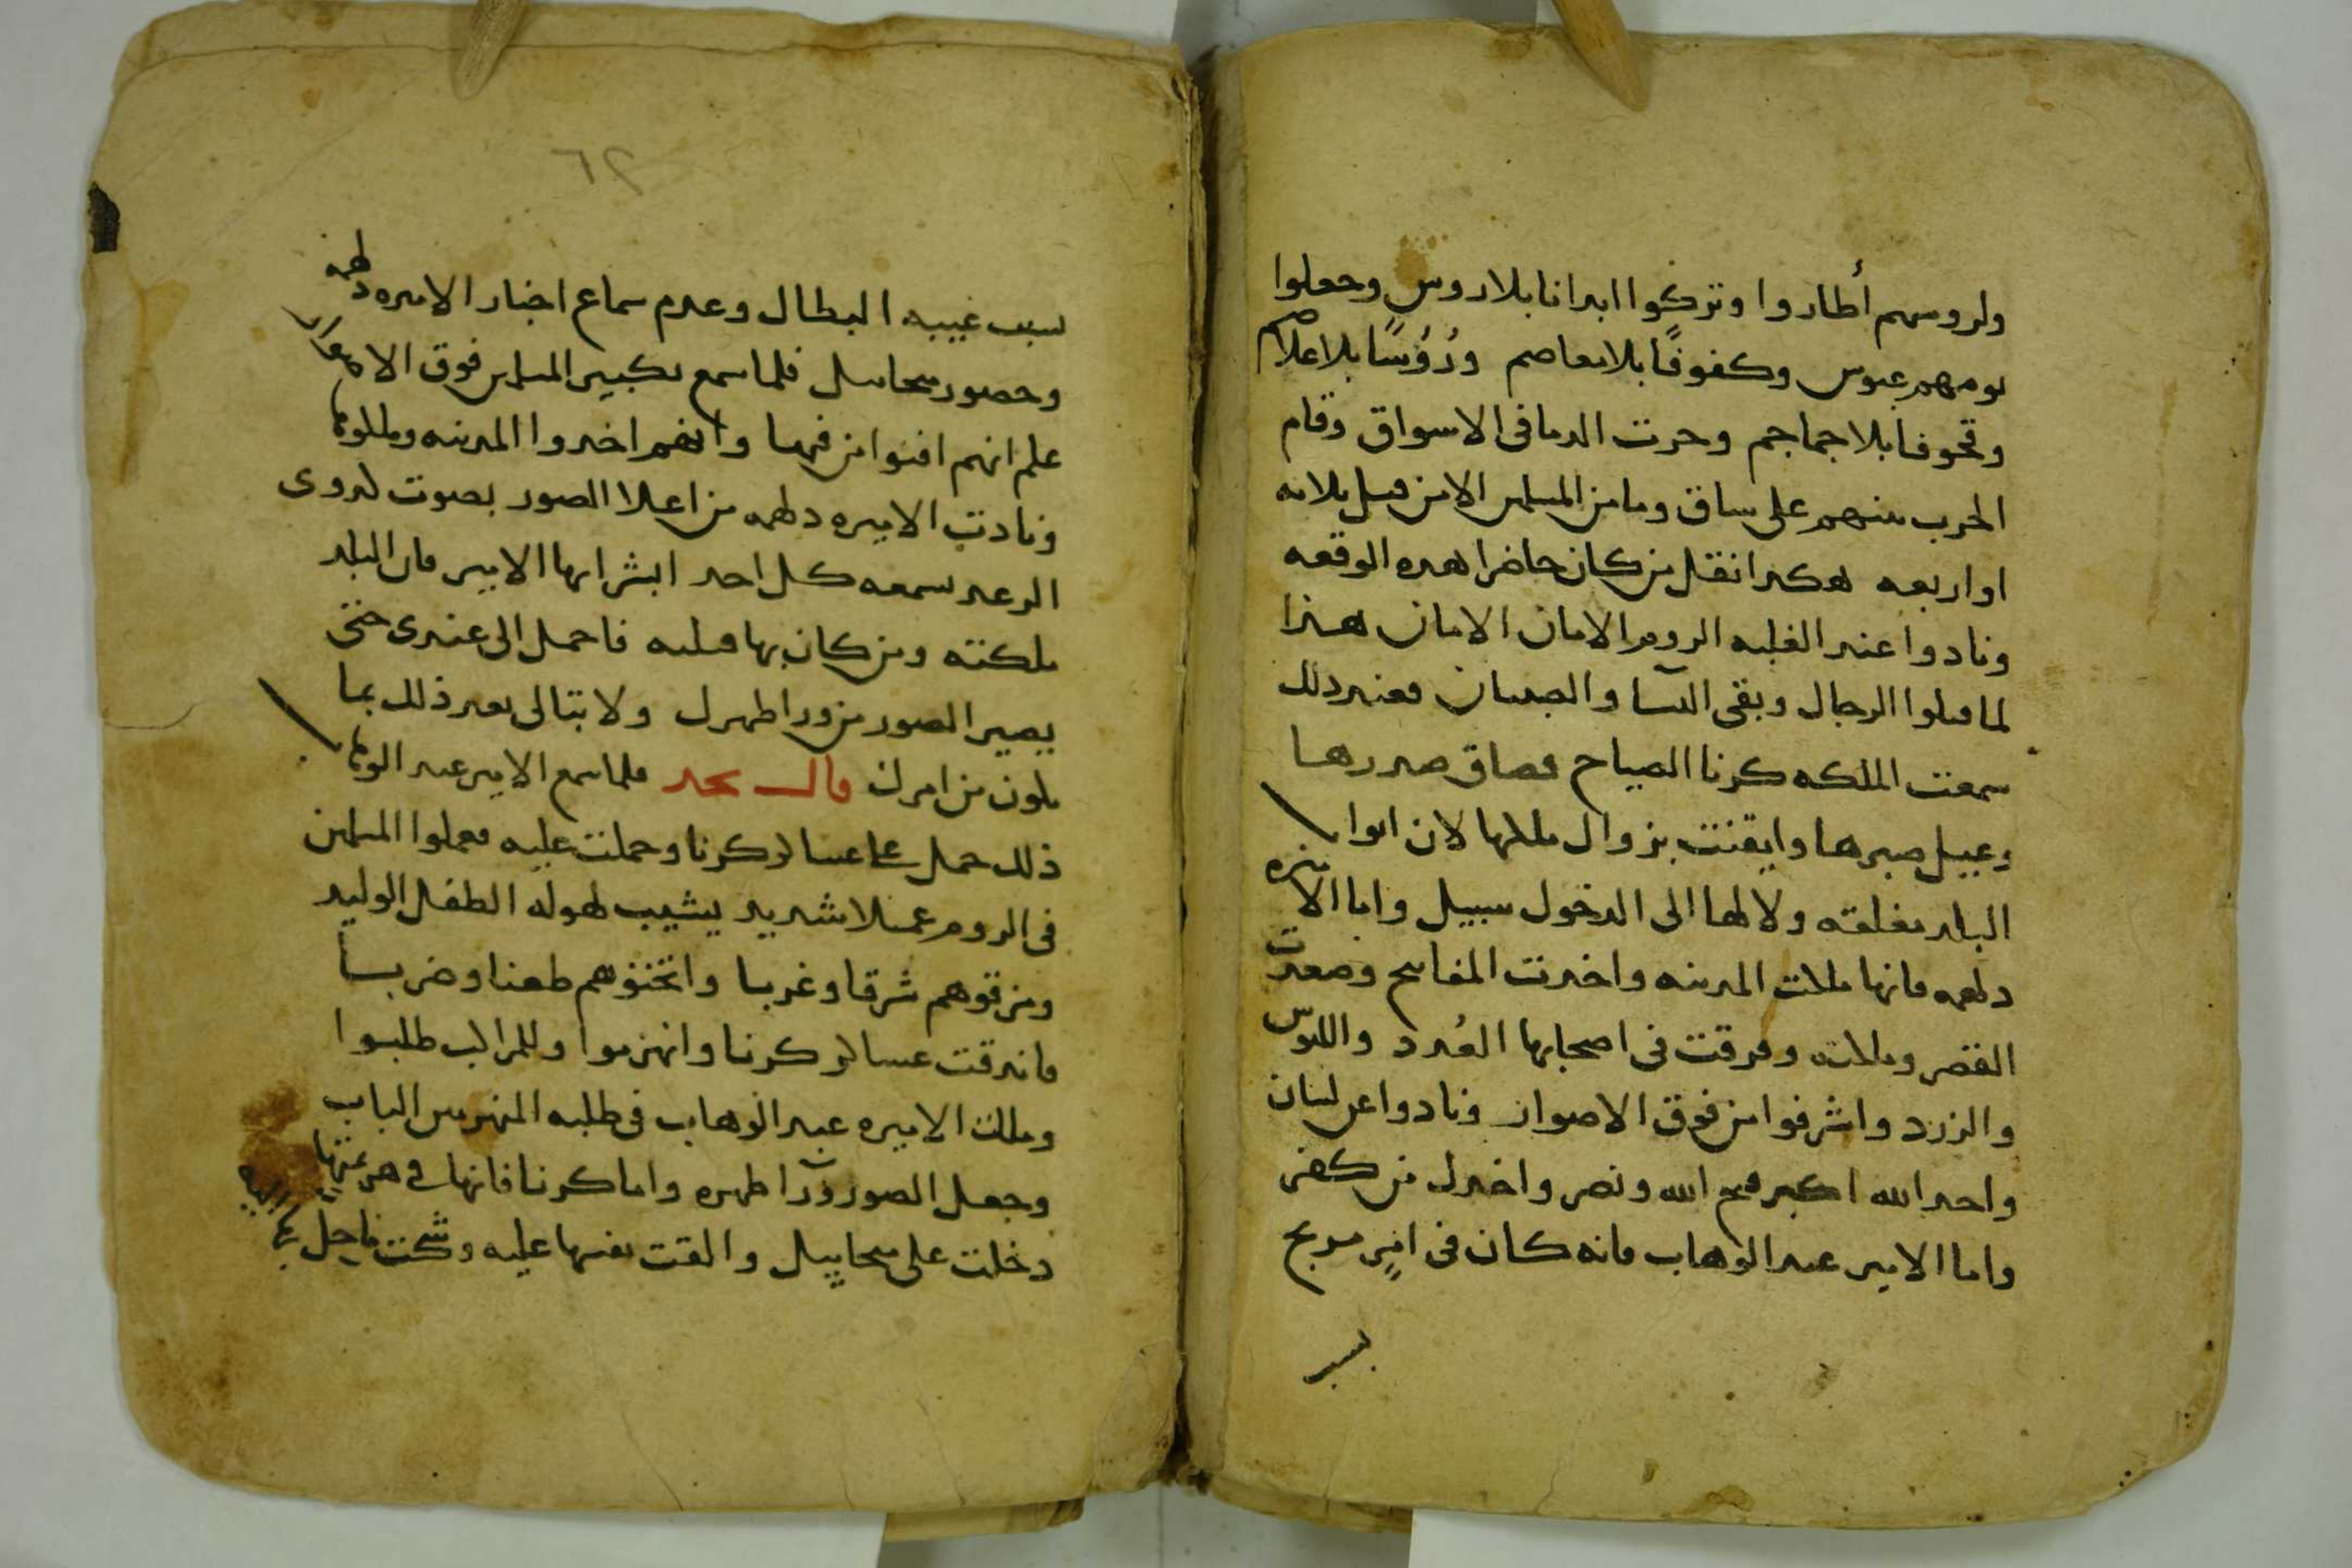 ولروسهم أطاروا وتركوا ابدانا بلا روس وجعلوا
يومهم عبوس وكفوفًا بلا معاصم ورُؤسًا بلا اعلام
وقحوفا بلا جماجم وجرت الدما فى الاسواق وقام
الحرب بينهم على ساق وما من المسلمين الا من قتل ثلاثه
او اربعه هكدا نقل من كان حاضرا هده الوقعه
ونادوا عند الغلبه الروم الامان الامان هذا
لما قتلوا الرجال وبقى النسا والصبيان فعند دلك
سمعت الملكه كرنا الصياح فضاق صدرها
وعييل صبرها وايقنت بزوال ملكها لان ابواب
البلد مغلقه ولا لها الى الدخول سبيل واما الاميره
دلهمه فانها ملكت المدينه واخدت المفاتيح وصعدت
القصر وملكته وفرقت فى اصحابها العُدد واللبوس
والزرد واشرفوا من فوق الاصوار ونادوا عن لسان
واحد الله اكبر فتح الله ونصر واخدل من كفر
واما الامير عبد الوهاب فانه كان فى امرٍ مريج
بسبب
٦٢
بسبب غيبه البطال وعدم سماع اخبار الاميره دلهمه
وحضور ميخاييل فلما سمع تكبير المسلمين فوق الاصوار
علم انهم افنوا من فيها وانهم اخدوا المدينه وملكوها
ونادت الاميره دلهمه من اعلا الصور بصوت كدوى
الرعد يسمعه كل احد ابشر ايها الامير فان البلد
ملكته ومن كان بها قتلته فاحمل الى عندى حتى
يصير الصور من ورا ظهرك ولا تبالى بعد ذلك بما
يكون من امرك قال نجد فلما سمع الامير عبد الوهاب
ذلك حمل على عساكر كرنا وحملت عليه فعملوا المسلمين
فى الروم عملا شديد يشيب لهوله الطفل الوليد
ومزقوهم شرقا وغربا واثخنوهم طعنا وضربا
فاندقت عساكر كرنا وانهزموا وللمراكب طلبوا
وملك الاميره عبد الوهاب فى طلبه المنهزمين الباب
وجعل الصور ورآ ظهره واما كرنا فانها فى هزيمتها
دخلت على ميخاييل والقت نفسها عليه وشكت ما حل بها اليه